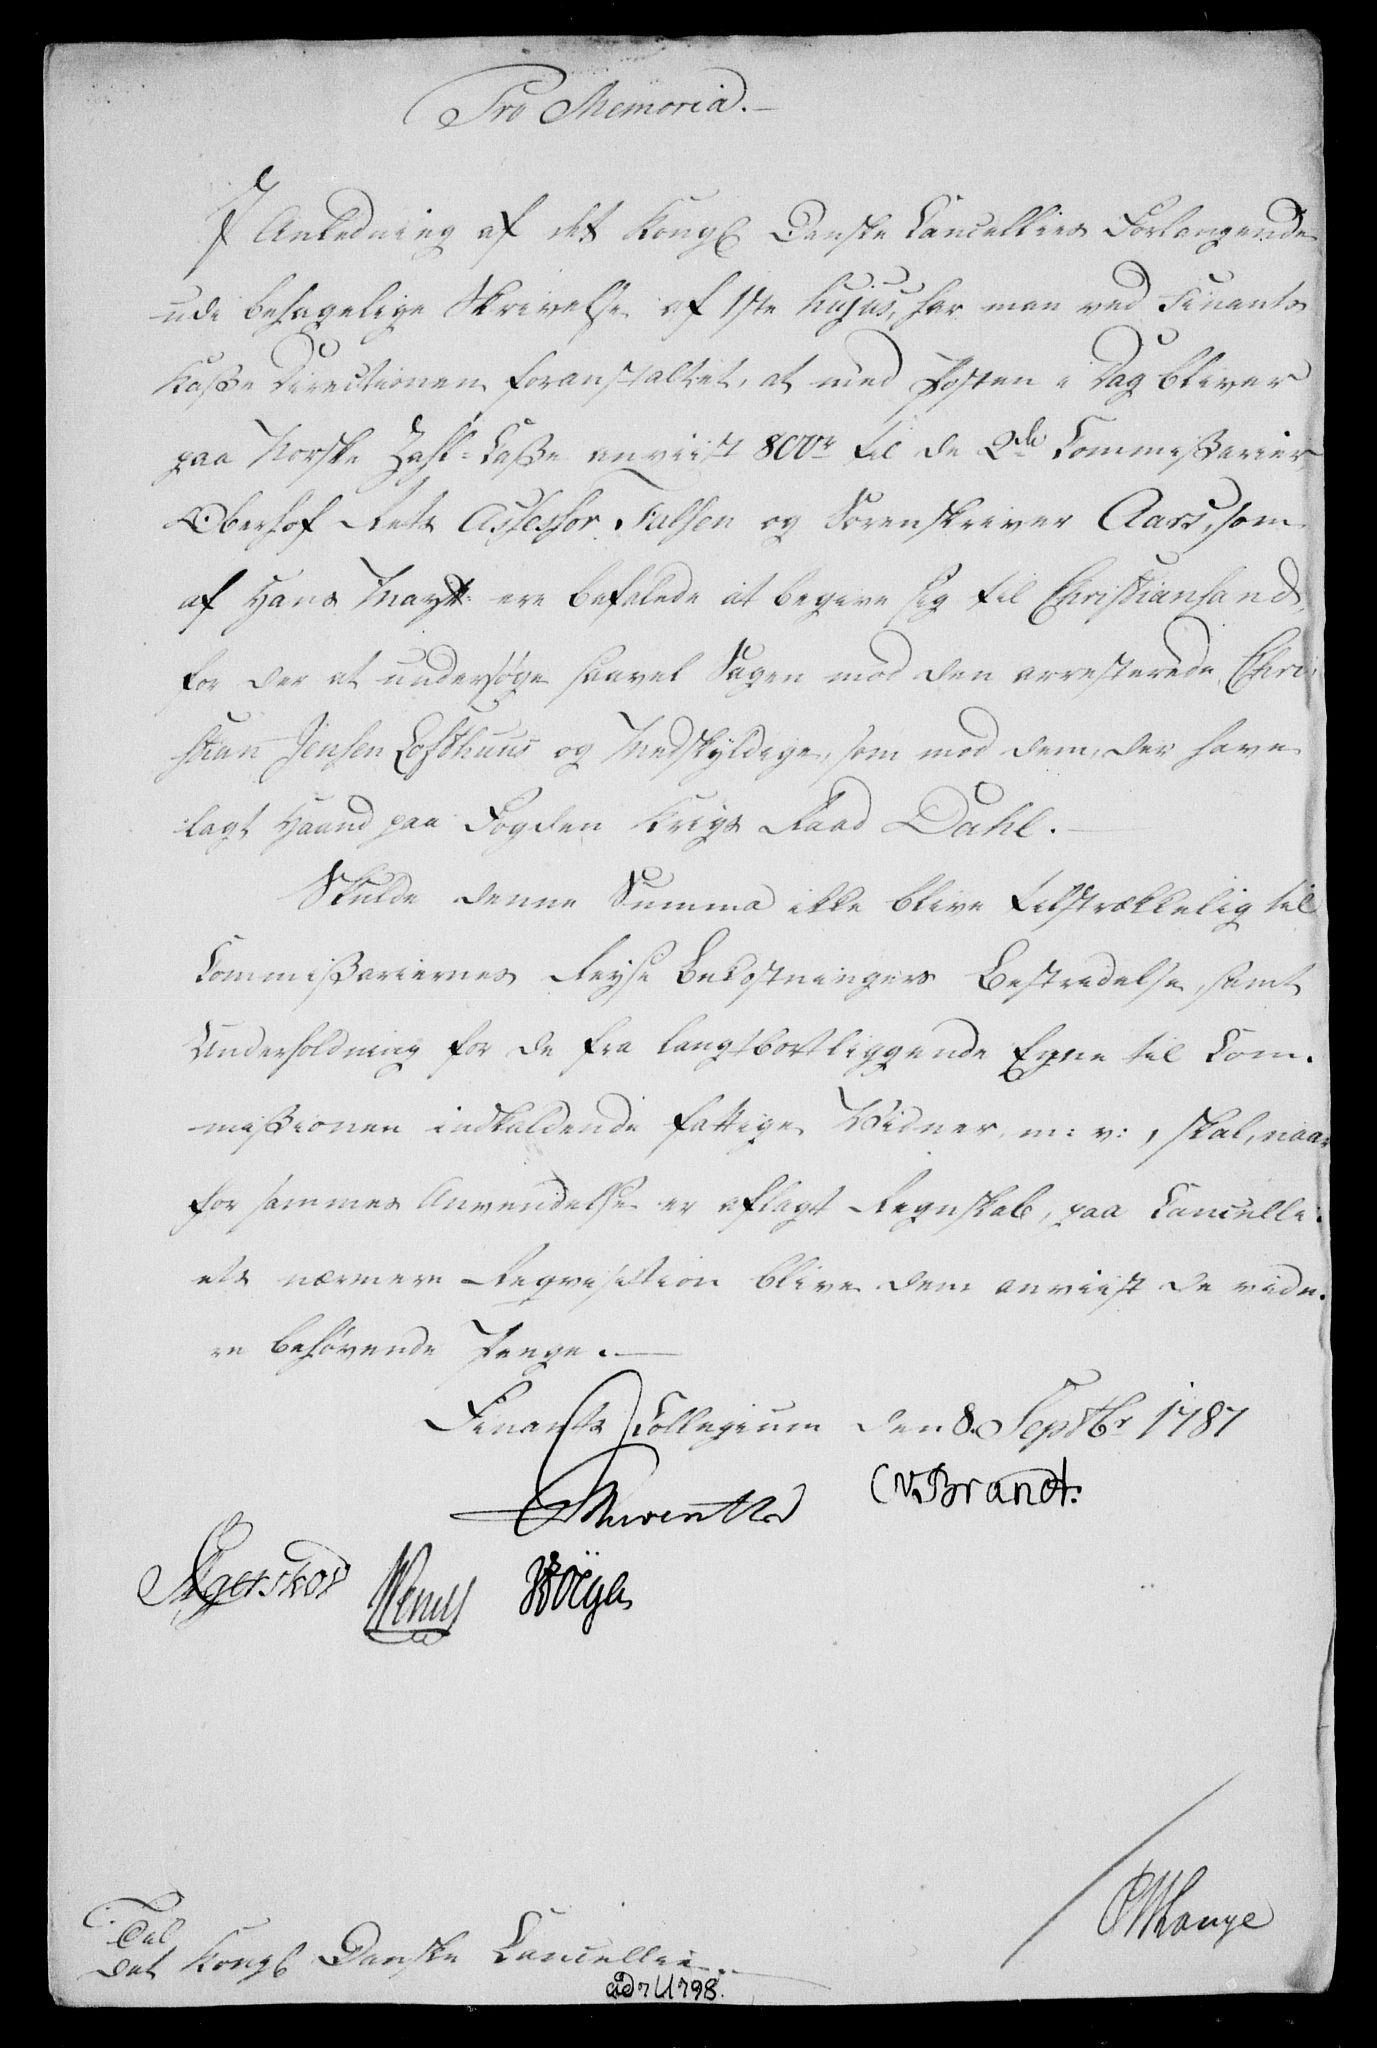 Pro Memoria.
I Anledning af det Kongl Danske Cancellies Forlangende
udi behagelige Skrivelse af 1ste hujus, har man ved Finants
Kasse Directionen foranstaltet, at med Posten i Dag bliver
paa Norske Zahl-Casse anviist 800 rd til de 2de Commissarier
Oberhof Rets Assessor Falsen og Sorenskriver Aars, som
af Hans Mayt: ere befalede at begive sig til Christiansand,
for der at undersøge saavel Sagen mod den arresterede Chri-
stian Jensen Lofthuus og Medskyldige, som mod dem, der have
lagt Haand paa Fogden Krigs Raad Dahl.
Skulde denne Summa ikke blive tilstrækkelig til
Commissariernes Reyse Bekostningers Bestridelse, samt
Underholdning for de fra langtbortliggende Egne til Com-
missionen indkaldende fattige Vidner, m: v:, skal, naar
for sammes Anvendelse er aflagt Regnskab, paa Cancelli-
ets nærmere Reqvisition blive dem anviist de vide-
re behøvende Penge.
Finants Collegium den 8. Septbr 1787
CvBrandt.
Agerskov
Til
det Kongl Danske Cancellie.
Lange